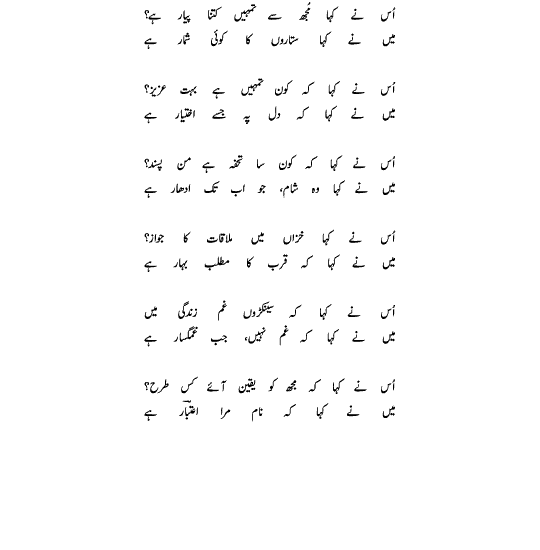 اُس نے کہا مُجھ سے تمہیں کتنا پیار ہے؟
میں نے کہا ستاروں کا کوئی شمار ہے
اُس نے کہا کہ کون تمہیں ہے بہت عزیز؟
میں نے کہا کہ دل پہ جسے اختیار ہے
اُس نے کہا کہ کون سا تحفہ ہے من پسند؟
میں نے کہا وہ شام، جو اب تک ادھار ہے
اُس نے کہا خزاں میں ملاقات کا جواز؟
میں نے کہا کہ قرب کا مطلب بہار ہے
اُس نے کہا کہ سینکڑوں غم زندگی میں
میں نے کہا کہ غم نہیں، جب غمگسار ہے
اُس نے کہا کہ مجھ کو یقین آئے کس طرح؟
میں نے کہا کہ نام مرا اعتبارؔ ہے